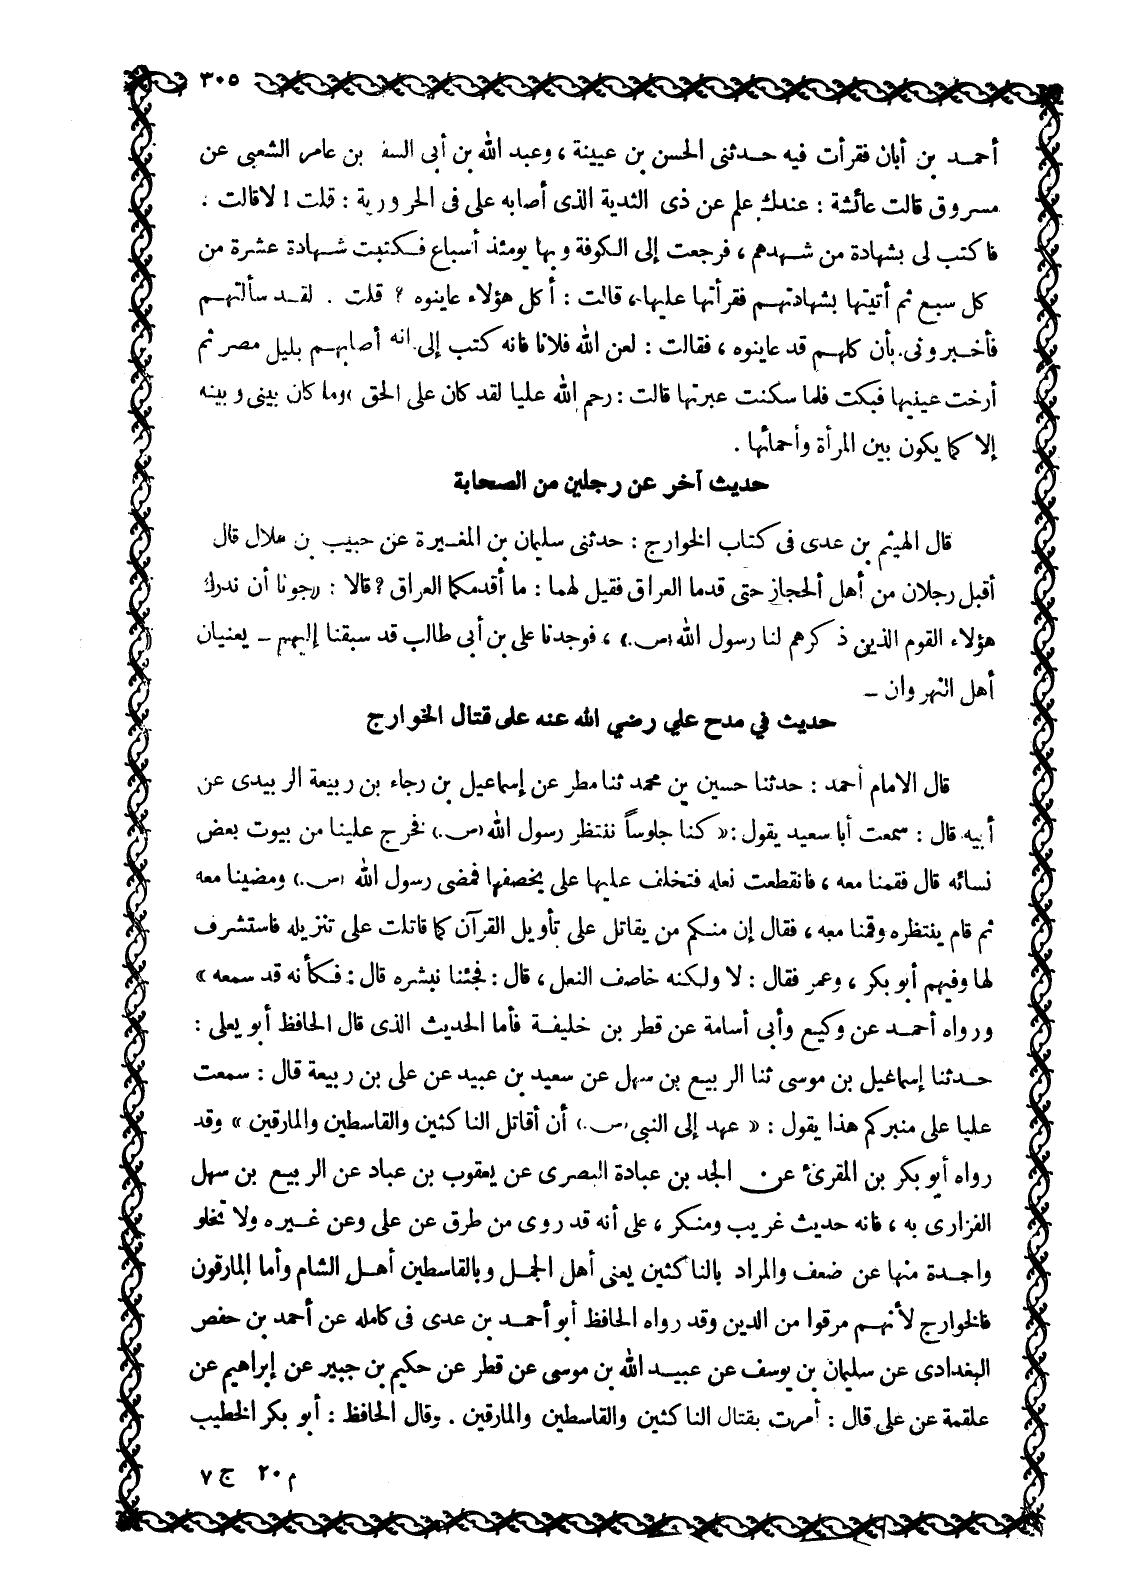 ٣٠٥
أحمد بن أبان فقرأت فيه حدثنى الحسن بن عيينة ، وعبد الله بن أبى السف بن عامر الشعبى عن
مسروق قالت عائشة : عندك علم عن ذى الثدية الذى أصابه على فى الحرورية : قلت ! لا قالت .
فاكتب لى بشهادة من شهدهم ، فرجعت إلى الكوفة وبها يومئذ أسباع فكتبت شهادة عشرة من
كل سبع ثم أتيتها بشهادتهم فقرأتها عليها ، قالت : أكل هؤلاء عاينوه ؟ قلت . لقد سألتهم
فأخبرونى بأن كلهم قد عاينوه ، فقالت : لعن الله فلانا فانه كتب إلى انه أصابهم بليل مصر ثم
أرخت عينيها فبكت فلما سكنت عبرتها قالت : رحم الله عليا لقد كان على الحق ، وما كان بينى وبينه
إلا كما يكون بين المرأة وأحمائها .
حديث آخر عن رجلين من الصحابة
قال الهيثم بن عدى فى كتاب الخوارج : حدثنى سليمان بن المغيرة عن حبيب بن هلال قال
أقبل رجلان من أهل الحجاز حتى قدما العراق فقيل لهما : ما أقدمكما العراق ؟ قالا : رجونا أن ندرك
هؤلاء القوم الذين ذكرهم لنا رسول الله (ص.) ، فوجدنا على بن أبى طالب قد سبقنا إليهم - يعنيان
أهل النهروان -
حديث في مدح علي رضي الله عنه على قتال الخوارج
قال الامام أحمد : حدثنا حسين بن محمد ثنا مطر عن إسماعيل بن رجاء بن ربيعة الربيدى عن
أبيه قال : سمعت أبا سعيد يقول : « كنا جلوساً ننتظر رسول الله (ص.) فخرج علينا من بيوت بعض
نسائه قال فقمنا معه ، فانقطعت نعله فتخلف عليها على يخصفها فمضى رسول الله (ص.) ومضينا معه
ثم قام ينتظره وقمنا معه ، فقال إن منكم من يقاتل على تأويل القرآن كما قاتلت على تنزيله فاستشرف
لها وفيهم أبو بكر ، وعمر فقال : لا ولكنه خاصف النعل ، قال : فجئنا نبشره قال : فكأنه قد سمعه »
ورواه أحمد عن وكيع وأبى أسامة عن قطر بن خليفة فأما الحديث الذى قال الحافظ أبو يعلى :
حدثنا إسماعيل بن موسى ثنا الربيع بن سهل عن سعيد بن عبيد عن على بن ربيعة قال : سمعت
عليا على منبركم هذا يقول : « عهد إلى النبى (ص.) أن أقاتل الناكثين والقاسطين والمارقين » وقد
رواه أبو بكر بن المقرئ عن الجد بن عبادة البصرى عن يعقوب بن عباد عن الربيع بن سهل
الفزارى به ، فانه حديث غريب ومنكر ، على أنه قد روى من طرق عن على وعن غيره ولا تخلو
واحدة منها عن ضعف والمراد بالناكثين يعنى أهل الجمل وبالقاسطين أهل الشام وأما المارقون
فالخوارج لأنهم مرقوا من الدين وقد رواه الحافظ أبو أحمد بن عدى فى كامله عن أحمد بن حفص
البغدادى عن سليمان بن يوسف عن عبيد الله بن موسى عن قطر عن حكيم بن جبير عن إبراهيم عن
علقمة عن على قال : أمرت بقتال الناكثين والقاسطين والمارقين . وقال الحافظ : أبو بكر الخطيب
م ٢٠ ج ٧